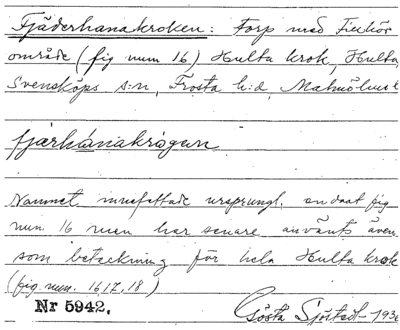 Fjäderhanakroken: Torp med tillhör
område (fig num 16) Hulta krok, Hulta,
Svensköps s:n, Frosta h:d, Malmöhus l
fjärhánakrágen
Namnet innefattade ursprungl. endast fig
num. 16 men har senare använts även
som beteckning för hela Hulta krok
(fig. num. 16, 17, 18)
Nr 5942.
Gösta Sjöstedt 1936